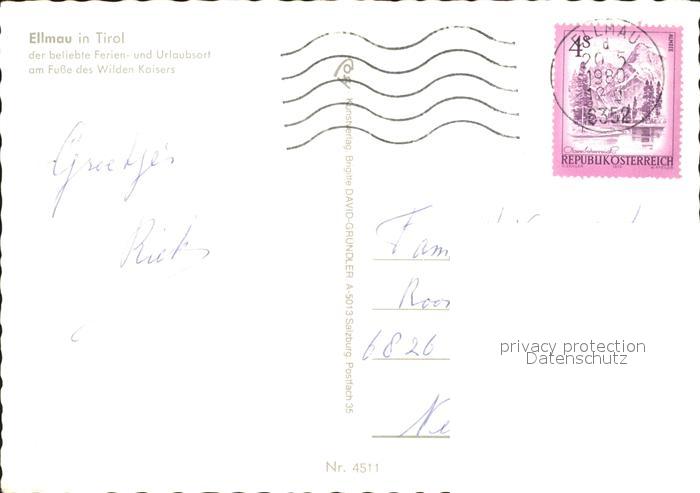 Ellmau in Tirol
der beliebte Ferien- und Urlaubsort
am Fuße des Wilden Kaisers
Greetjes
Fam
Roos
6826
Ne
Kunstverlag Brigitte DAVID-GRÜNDLER A-5013 Salzburg, Postfach 35
Nr. 4511
4s
REPUBLIK ÖSTERREICH
ELLMAU
d
20.5
1980
6352
privacy protection
Datenschutz